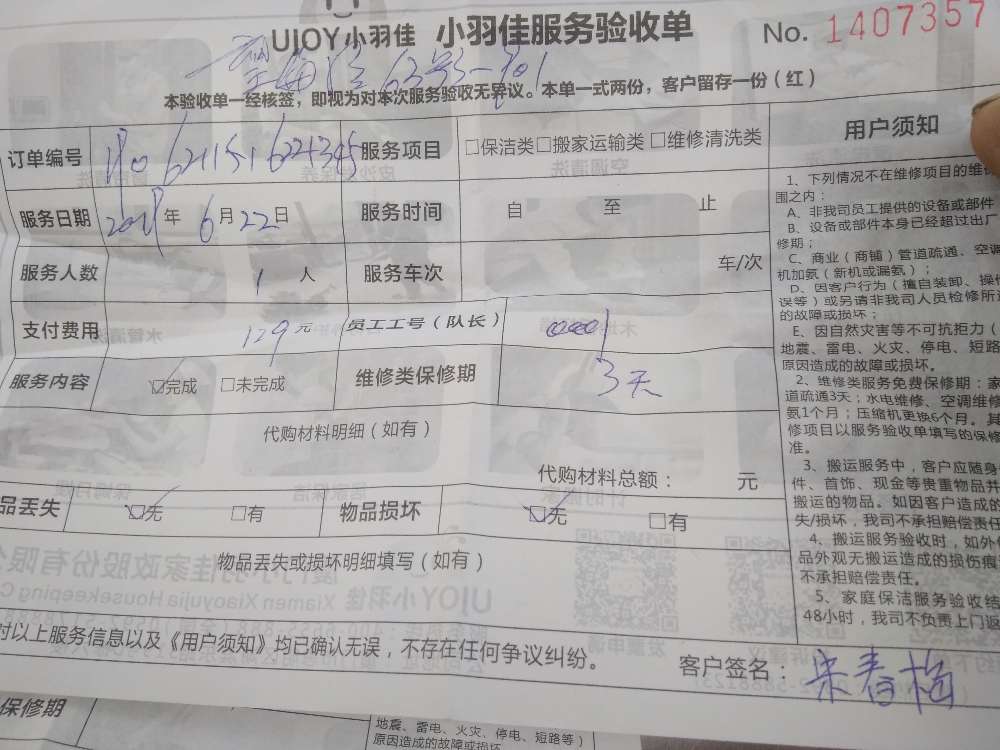 UJOY小羽佳 小羽佳服务验收单 No. 1407357
63号
本验收单一经核签，即视为对本次服务验收无异议。本单一式两份，客户留存一份（红）
订单编号 服务项目 □保洁类□搬家运输类□维修清洗类
服务日期 年6月22日 服务时间 自 至 止
服务人数 1人 服务车次 车/次
支付费用 129元 员工工号（队长）
服务内容 ☑完成 □未完成 维修类保修期 3天
代购材料明细（如有）
代购材料总额： 元
品丢失 ☑无 □有 物品损坏 ☑无 □有
物品丢失或损坏明细填写（如有）
对以上服务信息以及《用户须知》均已确认无误，不存在任何争议纠纷。
客户签名：朱春梅
用户须知
1、下列情况不在维修项目的维
围之内：
A、非我司员工提供的设备或部件
B、设备或部件本身已经超过出厂
修期；
C、商业（商铺）管道疏通、空调
机加氨（新机或漏氨）；
D、因客户行为（擅自装卸、操
误等）或另请非我司人员检修所
的故障或损坏；
E、因自然灾害等不可抗拒力（
地震、雷电、火灾、停电、短路
原因造成的故障或损坏。
2、维修类服务免费保修期：家
道疏通3天；水电维修、空调维修
氨1个月；压缩机更换6个月。其
修项目以服务验收单填写的保修
准。
3、搬运服务中，客户应随身
件、首饰、现金等贵重物品并
搬运的物品。如因客户造成的
失/损坏，我司不承担赔偿责任
4、搬运服务验收时，如外
品外观无搬运造成的损伤痕
不承担赔偿责任。
5、家庭保洁服务验收结
48小时，我司不负责上门返
保修期
地震、雷电、火灾、停电、短路等）
原因造成的故障或损坏